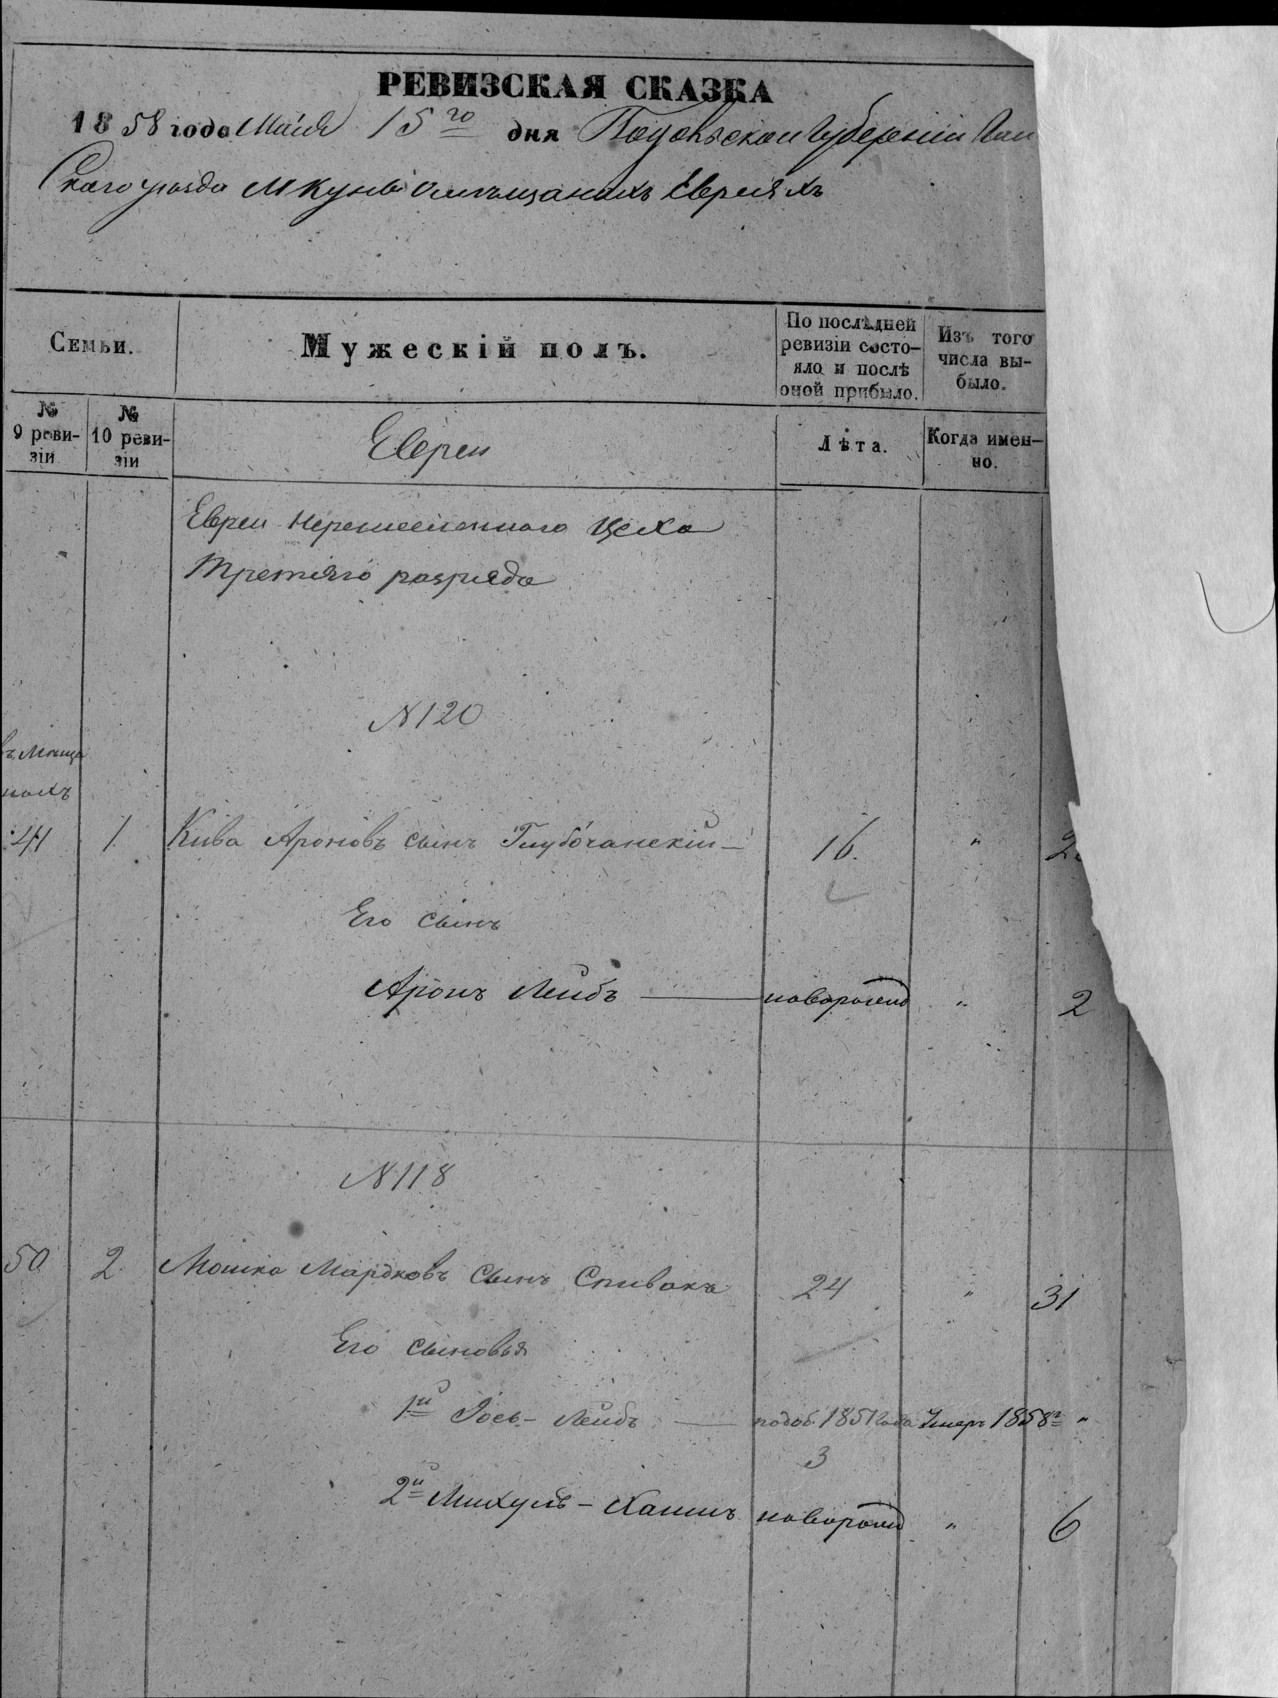 РЕВИЗСКАЯ СКАЗКА
1858 года Маія 15го дня Подольской Губерніи
скаго уѣзда М Куны о мѣщанахъ Евреяхъ
Семьи.
Мужескій полъ.
По послѣдней ревизіи состо-
яло и послѣ
оной прибыло.
Изъ того
числа вы-
было.
№
9 реви-
зіи
№
10 реви-
зіи
Евреи
Лѣта.
Когда имен-
но.
Евреи Неремесленнаго Цеха
Третяго разряда
N 120
въ мѣща
нахъ
41 1 Кива Ароновъ сынъ Глубочанскій — 16. "
Его сынъ
Аронъ Лейбъ — новорожд " 2
N 118
50 2 Мошко Мардковъ сынъ Спивакъ 24 " 31
Его сыновья
1й Іось-Лейбъ — 1851 года Умеръ 1858г "
3
2й Михуль-Хаимъ новорожд " 6